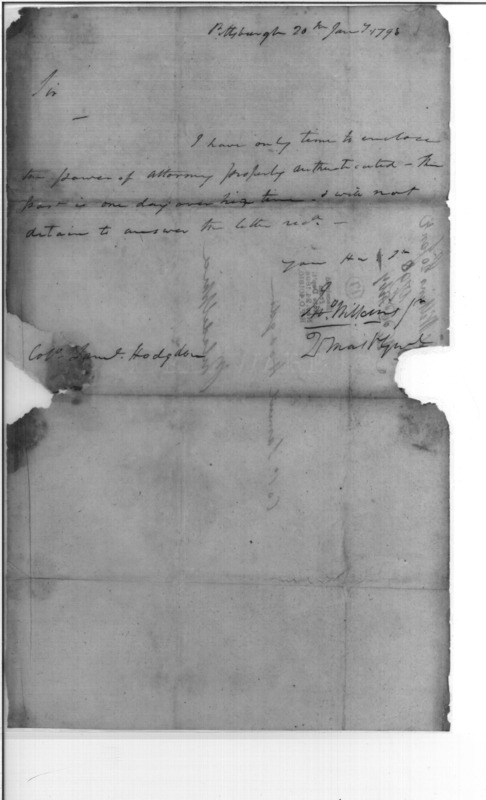 Pittsburgh 20th Jany 1793
Sir
I have only time to enclose
the power of attorney properly authenticated – the
post is one day over his time. I will not
detain to answer the letter recd. –
Your H S
Jno Wilkins Jr
D Mas
Colo. Saml. Hodgdon